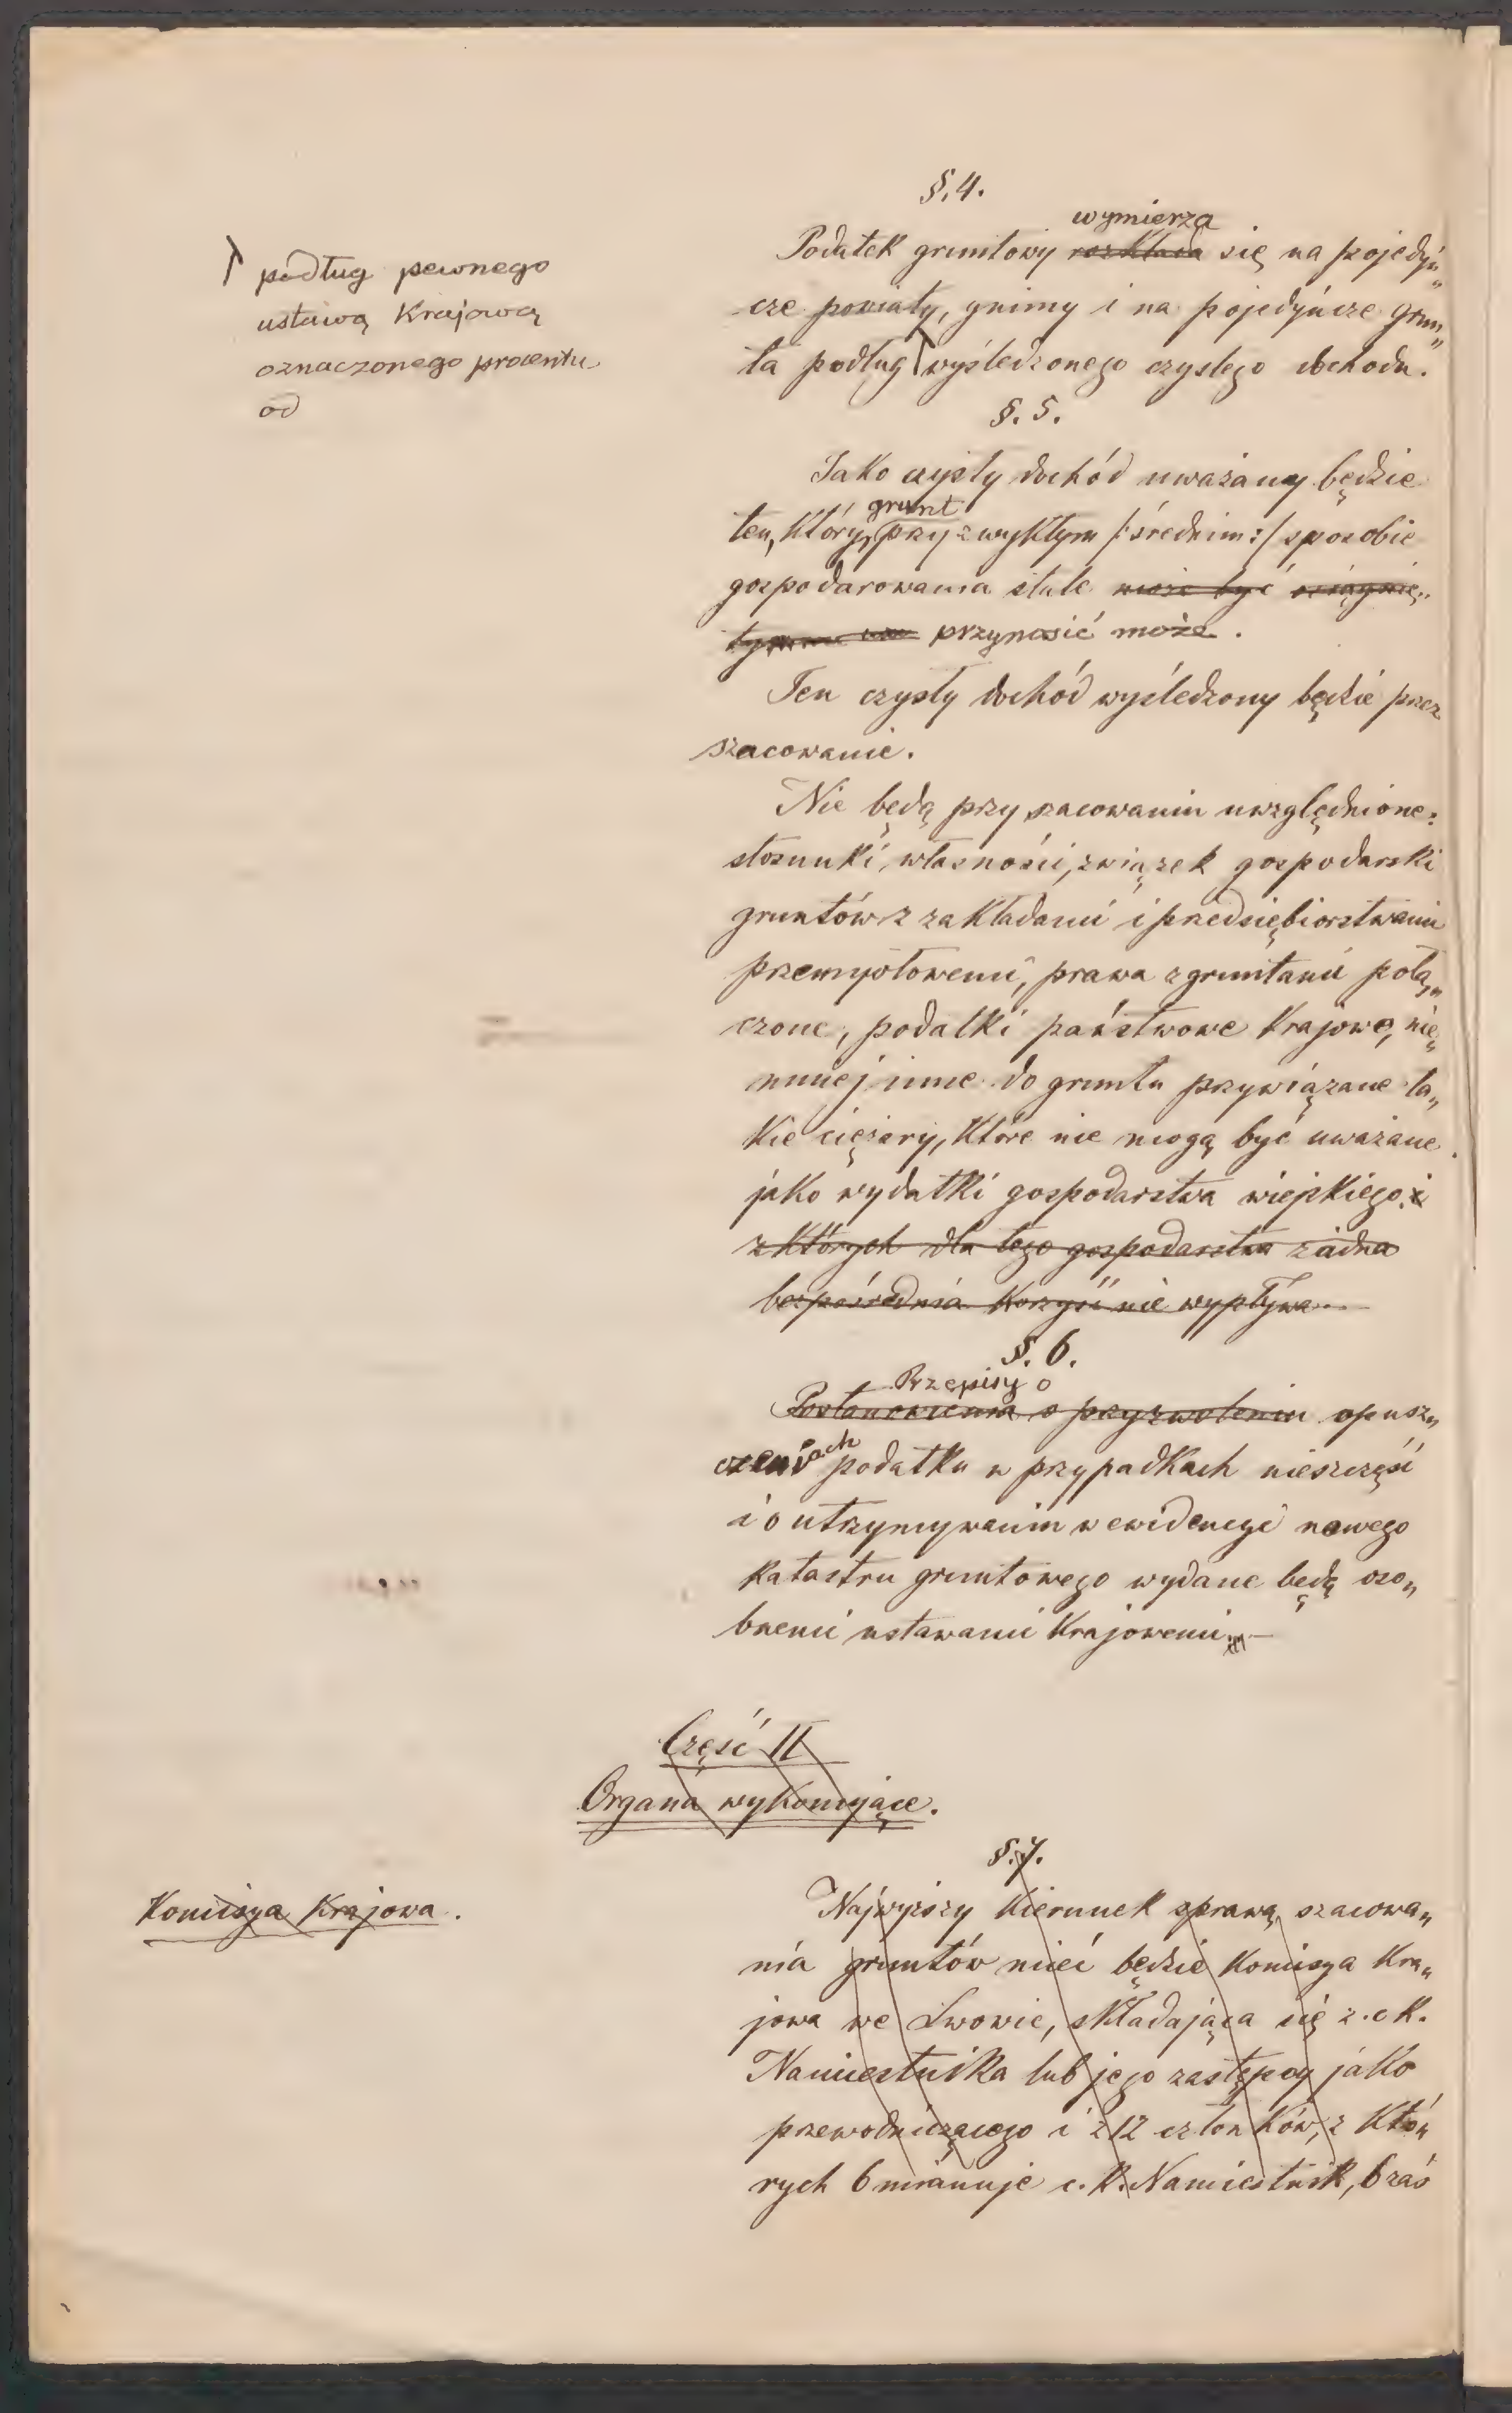 §. 4.
wymierza
Podatek gruntowy rozkłada się na pojedyń„
cze powiaty, gminy i na pojedyńcze grun„
ta podług wyśledzonego czystego dochodu.
podług pewnego
ustawą Krajową
oznaczonego procentu
od
§. 5.
Jako czysty dochód uważany będzie
grunt
ten, który przy zwykłym /:średnim:/ sposobie
gospodarowania stale może być osiągnię„
tym przynosić może.
Ten czysty dochód wyśledzony będzie przez
szacowanie.
Nie będą przy szacowaniu uwzględnione:
stosunki własności, związek gospodarski
gruntów z zakładami i przedsiębiorstwami
przemysłowemi, prawa z gruntami połą„
czone, podatki państwowe Krajowe, nie„
mniej inne do gruntu przywiązane ta„
kie ciężary, które nie mogą być uważane
jako wydatki gospodarstwa wiejskiego. i
z których dla tego gospodarstwa żadna
bezpośrednia korzyść nie wypływa.
§. 6.
Przepisy o
Postanowienia o przyzwoleniu opusz„
czeniach podatku w przypadkach nieszczęść
i o utrzymywaniu w ewidencyi nowego
katastru gruntowego wydane będą oso„
bnemi ustawami Krajowemi.
Część II
Organa wykonujące.
§. 7.
Komisya Krajowa.
Najwyższy kierunek sprawą szacowa„
nia gruntów mieć będzie Komisya Kra„
jowa we Lwowie, składająca się z c. k.
Namiestnika lub jego zastępcy jako
przewodniczącego i z 12 członków, z któ„
rych 6 mianuje c. k. Namiestnik, 6 zaś